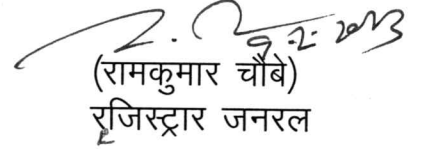 9.2.2023
(रामकुमार चौबे)
रजिस्ट्रार जनरल